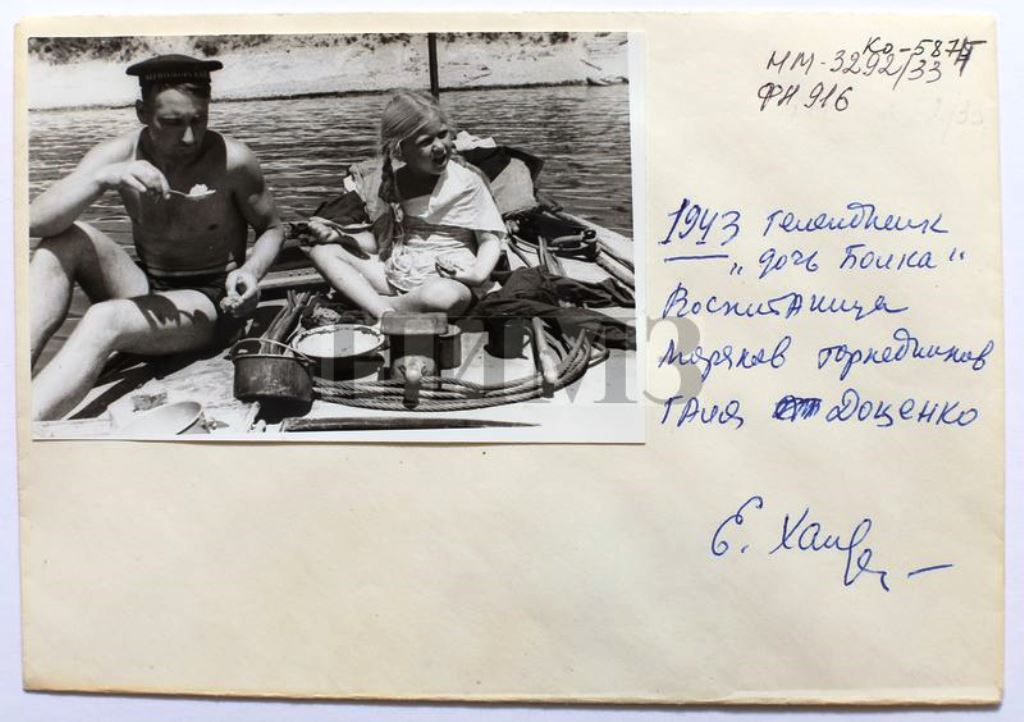 КО-5875
ММ-3292/33
ФН 916
1943 Геленджик
„дочь полка"
Воспитаница
моряков торпедников
Галя Доценко
Е. Халдей